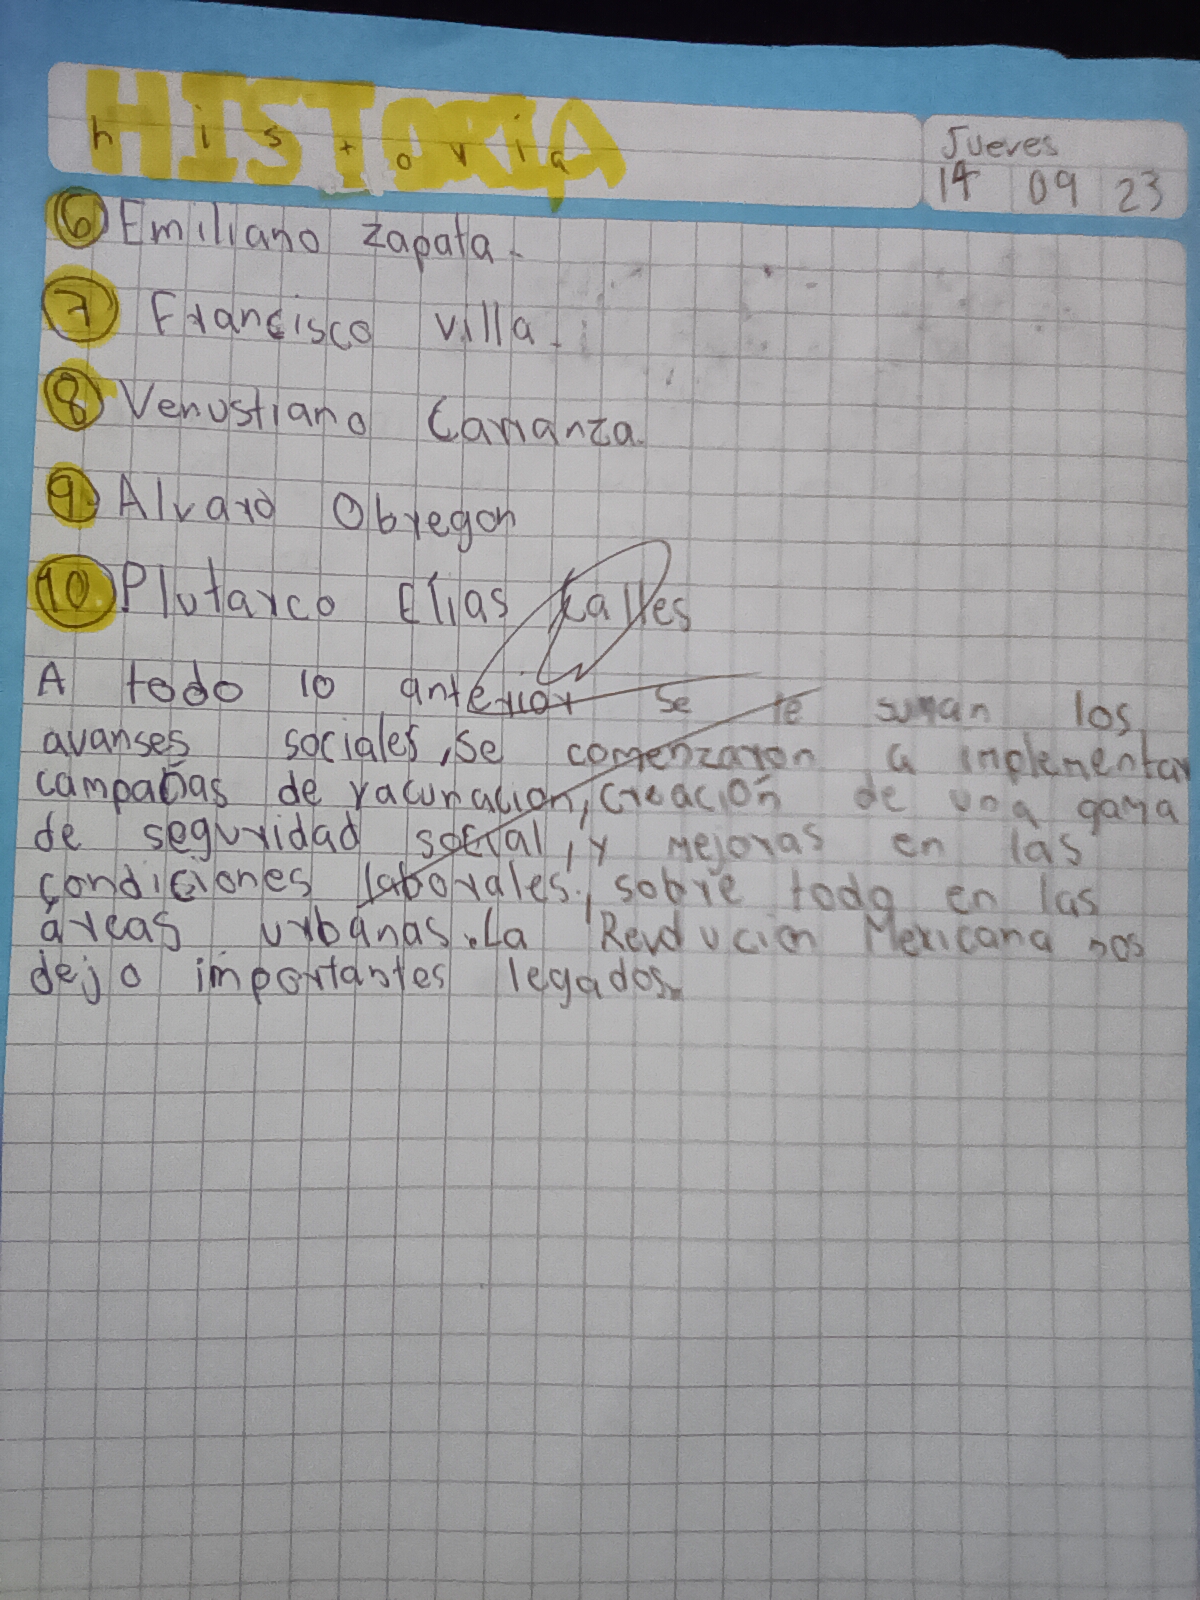 HISTORIA
historia
Jueves
14 09 23
6 Emiliano Zapata.
7 Francisco villa.
8 Venustiano Carranza.
9. Alvaro Obregon
10 Plutarco Elias Calles
A todo lo anterior se le suman los
avanses sociales, se comenzaron a implementar
campañas de vacunacion, creación de una gama
de seguridad social, y mejoras en las
condiciones laborales, sobre todo en las
áreas urbanas. La Revolucion Mexicana nos
dejo importantes legados.